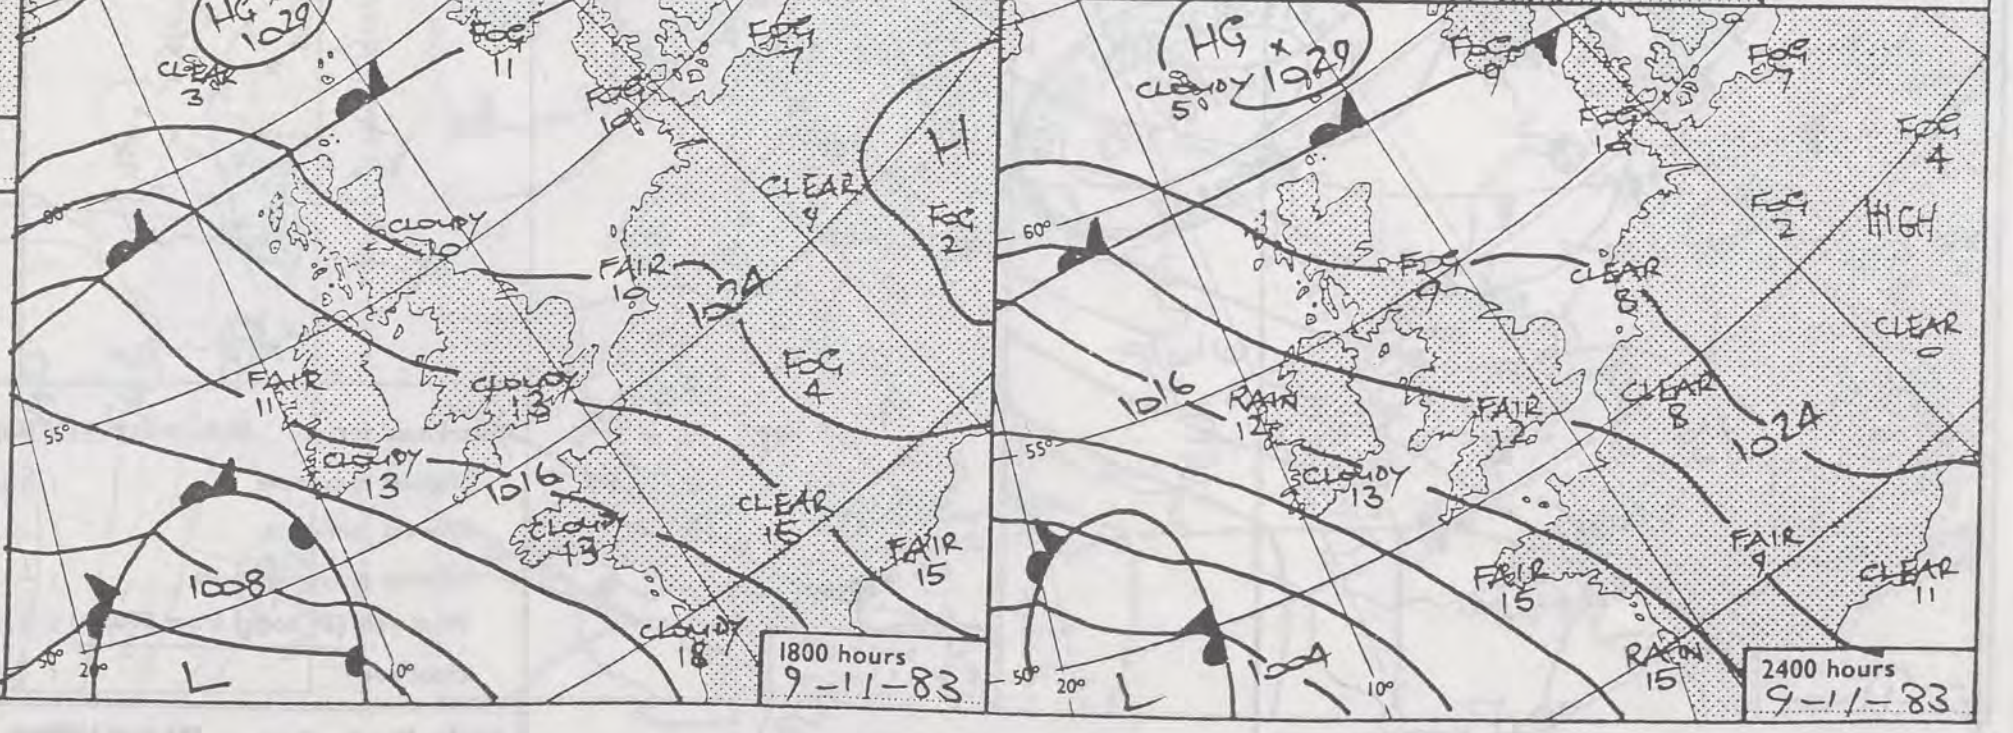 HG
1029
CLEAR
3
FOG
11
FOG
7
FOG
10
H
CLEAR
4
FOG
2
CLOUDY
10
FAIR
10
1024
60°
FOG
4
FAIR
11
CLOUDY
13
55°
CLOUDY
13
1016
CLEAR
15
CLOUDY
13
FAIR
15
1008
CLOUDY
18
50°
20°
L
10°
1800 hours
9-11-83
HG x
1029
CLOUDY
5
FOG
9
FOG
7
FOG
10
FOG
4
FOG
2
HIGH
60°
FOG
9
CLEAR
8
CLEAR
0
1016
RAIN
12
FAIR
12
CLEAR
8
1024
55°
CLOUDY
13
FAIR
9
FAIR
15
CLEAR
11
RAIN
15
50°
20°
L
1004
10°
2400 hours
9-11-83